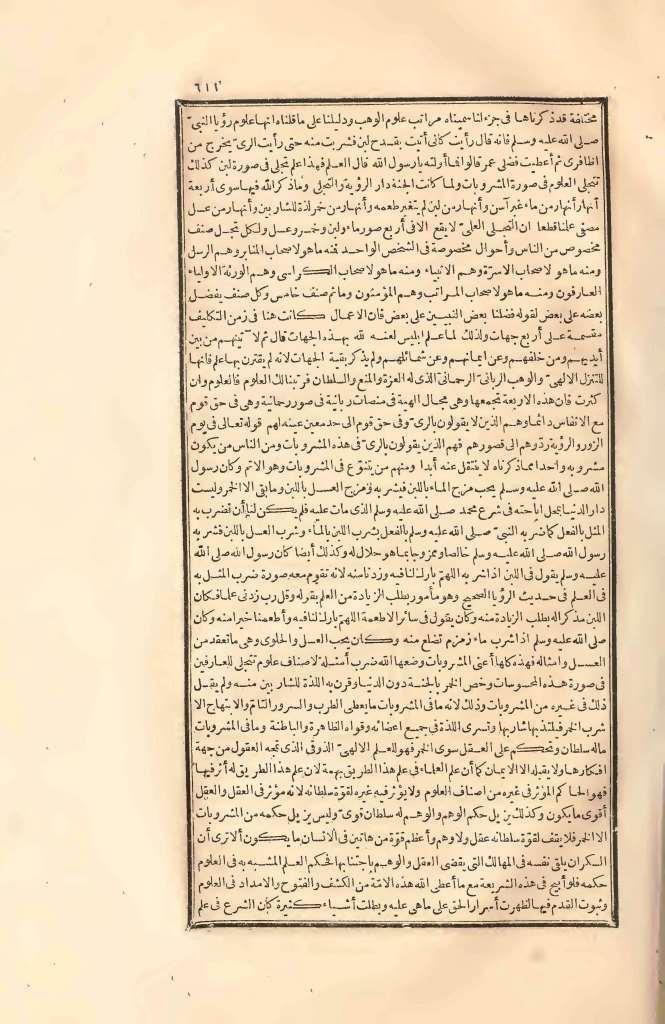 ٦١١
مختلفة قد ذكرناها فى جزء لنا سميناه مراتب علوم الوهب ودليلنا على ما قلناه انها علوم رؤيا النبىّ
صلى الله عليه وسلم فانه قال رأيت كانى أتيت بقدح لبن فشربت منه حتى رأيت الرىّ يخرج من
اظافرى ثم أعطيت فضلى عمر قالوا فما أوّلته يارسول الله قال العلم فهذا علم تجلى فى صورة لبن كذلك
تتجلى العلوم فى صورة المشروبات ولما كانت الجنة دار الرؤية والتجلى وما ذكر الله فيها سوى أربعة
أنهار أنهار من ماء غير آسن وأنهار من لبن لم يتغير طعمه وأنهار من خمر لذة للشاربين وأنهار من عسل
مصفى علمنا قطعا ان التجلى العلىّ لا يقع الا فى أربع صور ماء ولبن وخمر وعسل ولكل تجل صنف
مخصوص من الناس وأحوال مخصوصة فى الشخص الواحد فمنه ما هو لاصحاب المنابر وهم الرسل
ومنه ما هو لاصحاب الاسرّة وهم الانبياء ومنه ما هو لاصحاب الكراسى وهم الورثة الاولياء
العارفون ومنه ما هو لاصحاب المراتب وهم المؤمنون وما ثم صنف خامس وكل صنف يفضل
بعضه على بعض لقوله فضلنا بعض النبيين على بعض فان الاعمال كانت هنا فى زمن التكليف
مقسمة على أربع جهات ولذلك لما علم ابليس لعنه الله بهذه الجهات قال ثم لآتينهم من بين
أيديهم ومن خلفهم وعن ايمانهم وعن شمائلهم ولم يذكر بقية الجهات لانه لم يقترن بها علم فانها
للتنزل الالهىّ والوهب الربانىّ الرحمانىّ الذى له العزة والمنع والسلطان فرتبنا لك العلوم فالعلوم وان
كثرت فان هذه الاربعة تجمعها وهى مجال الهية فى منصات ربانية فى صور رحمانية وهى فى حق قوم
مع الانفاس دائما وهم الذين لا يقولون بالرىّ وفى حق قوم الى حد معين عينه لهم قوله تعالى فى يوم
الزور والرؤية ردّوهم الى قصورهم فهم الذين يقولون بالرىّ فى هذه المشروبات ومن الناس من يكون
مشروبه واحدا مما ذكرناه لا ينتقل عنه أبدا ومنهم من يتنوّع فى المشروبات وهو الاتم وكان رسول
الله صلى الله عليه وسلم يحب مزج الماء باللبن فيشربه ومزج العسل باللبن وما بقى الا الخمر وليست
دار الدنيا بمحل اباحته فى شرع محمد صلى الله عليه وسلم الذى مات عليه فلم يكن لنا أن نضرب به
المثل بالفعل كما ضربه النبىّ صلى الله عليه وسلم بالفعل بشرب اللبن بالماء وشرب العسل باللبن فشربه
رسول الله صلى الله عليه وسلم خالصا وممزوجا بما هو حلال له وكذلك أيضا كان رسول الله صلى الله
عليه وسلم يقول فى اللبن اذا شربه اللهمّ بارك لنا فيه وزدنا منه لانه تقوم معه صورة ضرب المثل به
فى العلم فى حديث الرؤيا الصحيح وهو مأمور بطلب الزيادة من العلم بقوله وقل رب زدنى علما فكان
اللبن مذكرا له بطلب الزيادة منه وكان يقول فى سائر الاطعمة اللهمّ بارك لنا فيه وأطعمنا خيرا منه وكان
صلى الله عليه وسلم اذا شرب ماء زمزم تضلع منه وكان يحب العسل والحلوى وهى ما تعقد من
العسل وامثاله فهذه كلها أعنى المشروبات وضعها الله ضرب أمثلة لاصناف علوم تتجلى للعارفين
فى صورة هذه المحسوسات وخص الخمر بالجنة دون الدنيا وقرن به اللذة للشاربين منه ولم يقل
ذلك فى غيره من المشروبات وذلك لانه ما فى المشروبات ما يعطى الطرب والسرور التامّ والابتهاج الا
شرب الخمر فيلتذ بها شاربها وتسرى اللذة فى جميع اعضائه وقواه الظاهرة والباطنة وما فى المشروبات
ما له سلطان وتحكم على العقل سوى الخمر فهو للعلم الالهىّ الذوقى الذى تمجه العقول من جهة
افكارها ولا يقبله الا الايمان كما أن علم العلماء فى علم هذا الطريق بهمة لان علم هذا الطريق له أثر فيها
فهو الحاكم المؤثر فى غيره من اصناف العلوم ولا يؤثر فيه غيره لقوّة سلطانه لانه مؤثر فى العقل والعقل
أقوى ما يكون وكذلك يزيل حكم الوهم والوهم له سلطان قوىّ وليس يزيل حكمه من المشروبات
الا الخمر فلا يقف لقوّة سلطانه عقل ولا وهم وأعظم قوّة من هاتين فى الانسان ما يكون ألا ترى أن
السكران يلقى نفسه فى المهالك التى يقضى العقل والوهم باجتنابها فحكم العلم المشبه به فى العلوم
حكمه فلو أبيح فى هذه الشريعة مع ما أعطى الله هذه الامّة من الكشف والفتوح والامداد فى العلوم
وثبوت القدم فيها لظهرت أسرار الحق على ما هى عليه وبطلت أشياء كثيرة كان الشرع فى علم